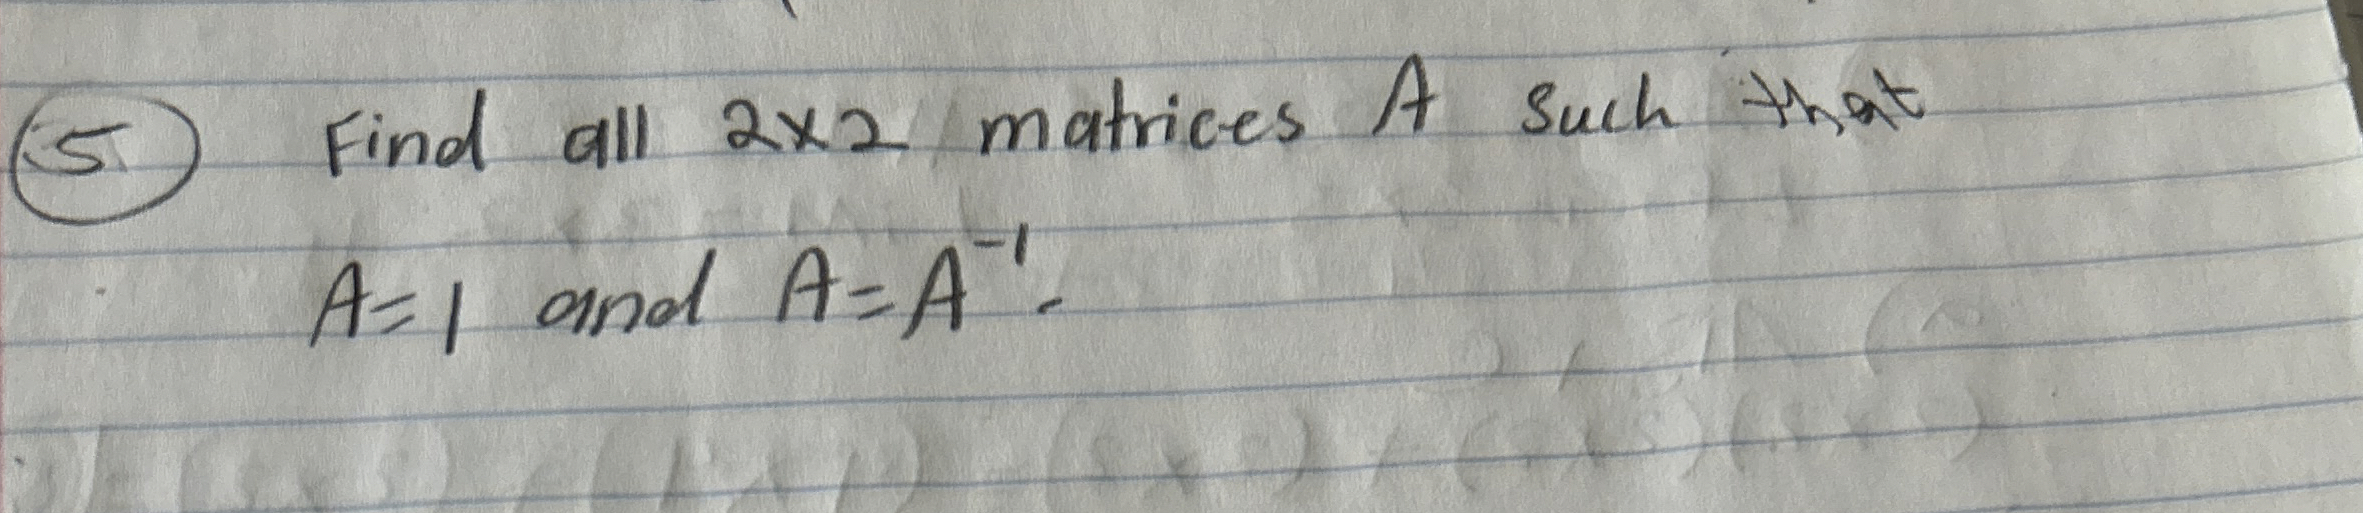 5 Find all 2x2 matrices A such that
A=1 and A=A⁻¹.